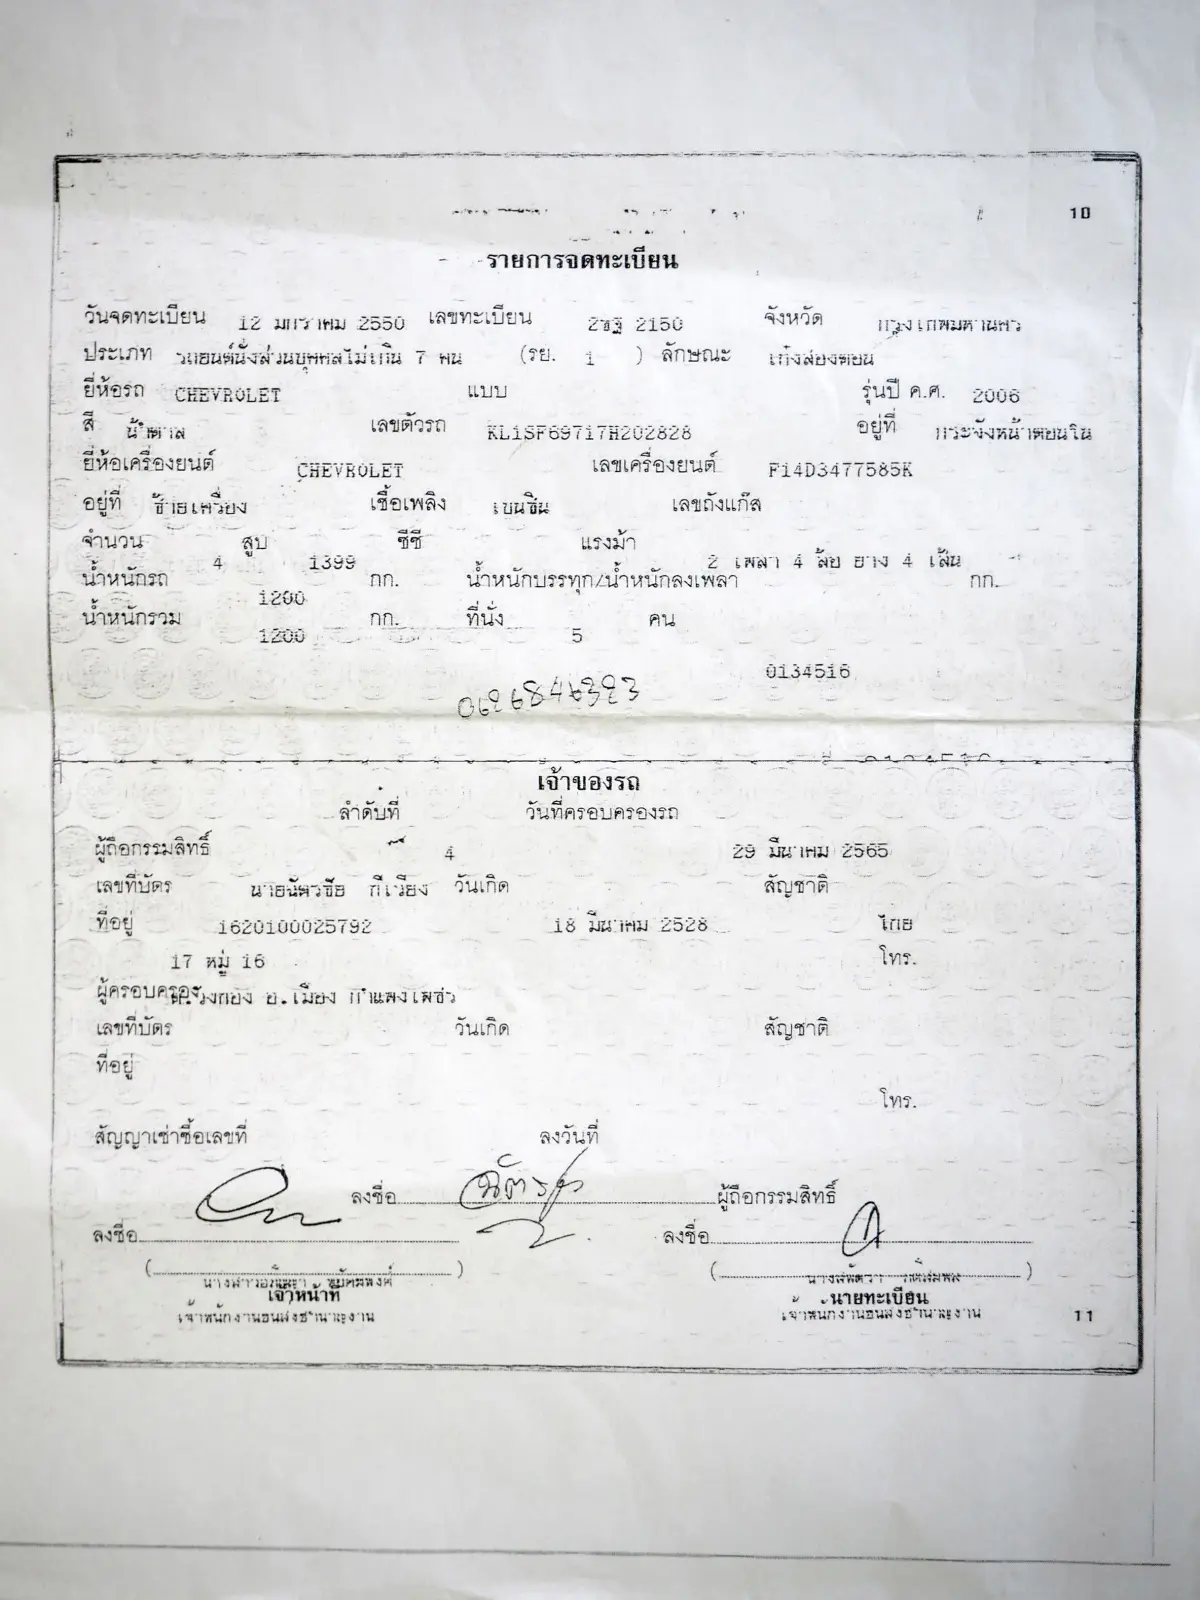 10
รายการจดทะเบียน
วันจดทะเบียน 12 มกราคม 2550 เลขทะเบียน 2ชฐ 2150 จังหวัด กรุงเทพมหานคร
ประเภท รถยนต์นั่งส่วนบุคคลไม่เกิน 7 คน (รย. 1 ) ลักษณะ เก๋งสองตอน
ยี่ห้อรถ CHEVROLET แบบ รุ่นปี ค.ศ. 2006
สี น้ำตาล เลขตัวรถ KL1SF69717H202828 อยู่ที่ กระจังหน้าตอนใน
ยี่ห้อเครื่องยนต์ CHEVROLET เลขเครื่องยนต์ F14D3477585K
อยู่ที่ ซ้ายเครื่อง เชื้อเพลิง เบนซิน เลขถังแก๊ส
จำนวน 4 สูบ 1399 ซีซี แรงม้า 2 เพลา 4 ล้อ ยาง 4 เส้น
น้ำหนักรถ 1200 กก. น้ำหนักบรรทุก/น้ำหนักลงเพลา กก.
น้ำหนักรวม 1200 กก. ที่นั่ง 5 คน
0134516
0626846323
เจ้าของรถ
ลำดับที่ 4 วันที่ครอบครองรถ 29 มีนาคม 2565
ผู้ถือกรรมสิทธิ์
เลขที่บัตร 1620100025792 วันเกิด 18 มีนาคม 2528 สัญชาติ ไทย
ที่อยู่ 17 หมู่ 16 โทร.
ผู้ครอบครอง อ.เมือง กำแพงเพชร
เลขที่บัตร วันเกิด สัญชาติ
ที่อยู่
โทร.
สัญญาเช่าซื้อเลขที่ ลงวันที่
ลงชื่อ ผู้ถือกรรมสิทธิ์
ลงชื่อ ลงชื่อ
( ) ( )
เจ้าหน้าที่ นายทะเบียน
เจ้าพนักงานขนส่งชำนาญงาน เจ้าพนักงานขนส่งชำนาญงาน
11